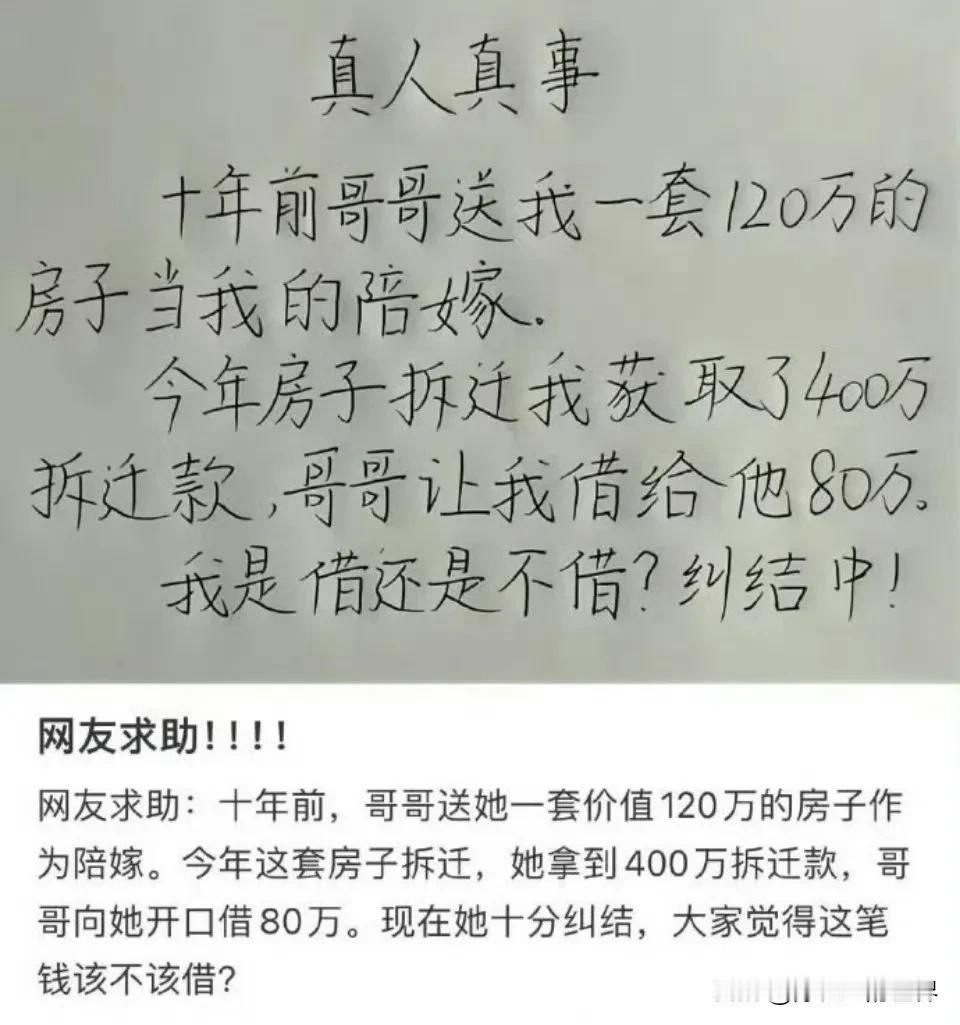 真人真事
十年前哥哥送我一套120万的
房子当我的陪嫁.
今年房子拆迁我获取了400万
拆迁款,哥哥让我借给他80万。
我是借还是不借?纠结中!
网友求助!!!!
网友求助：十年前，哥哥送她一套价值120万的房子作
为陪嫁。今年这套房子拆迁，她拿到400万拆迁款，哥
哥向她开口借80万。现在她十分纠结，大家觉得这笔
钱该不该借？